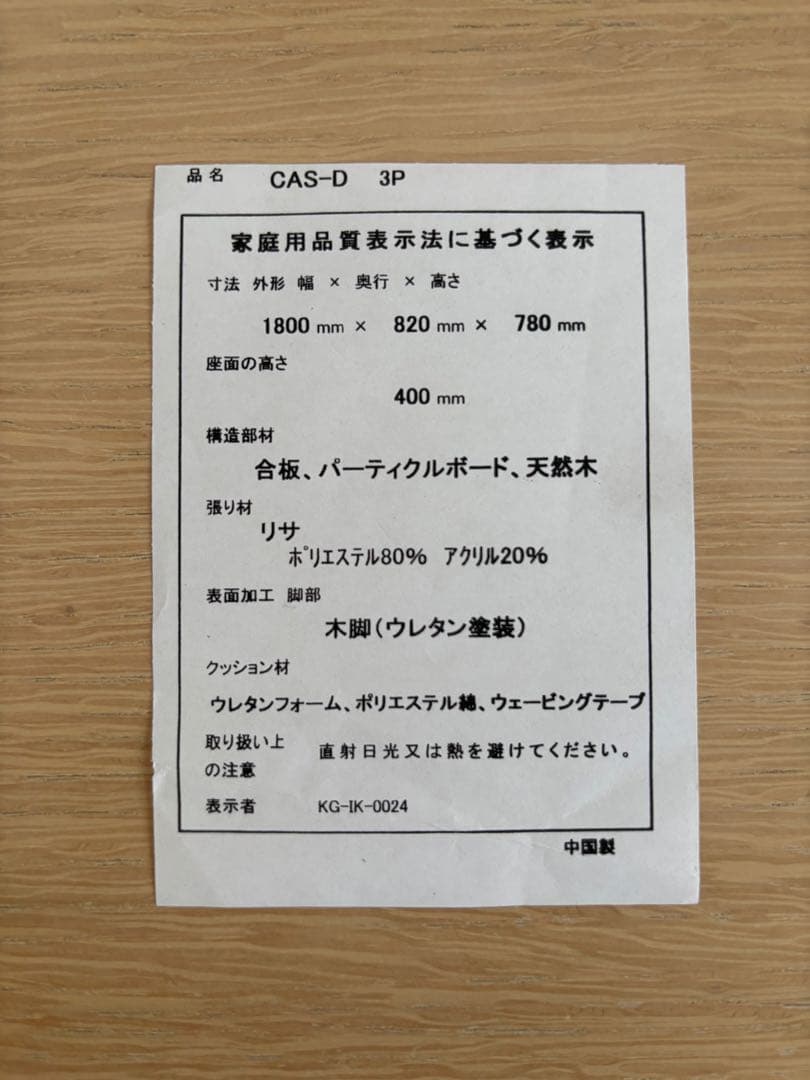 品名 CAS-D 3P
家庭用品質表示法に基づく表示
寸法 外形 幅 × 奥行 × 高さ
1800 mm × 820 mm × 780 mm
座面の高さ
400 mm
構造部材
合板、パーティクルボード、天然木
張り材
リサ
ﾎﾟﾘｴｽﾃﾙ80% ｱｸﾘﾙ20%
表面加工 脚部
木脚(ウレタン塗装)
クッション材
ウレタンフォーム、ポリエステル綿、ウェービングテープ
取り扱い上
の注意
直射日光又は熱を避けてください。
表示者 KG-IK-0024
中国製